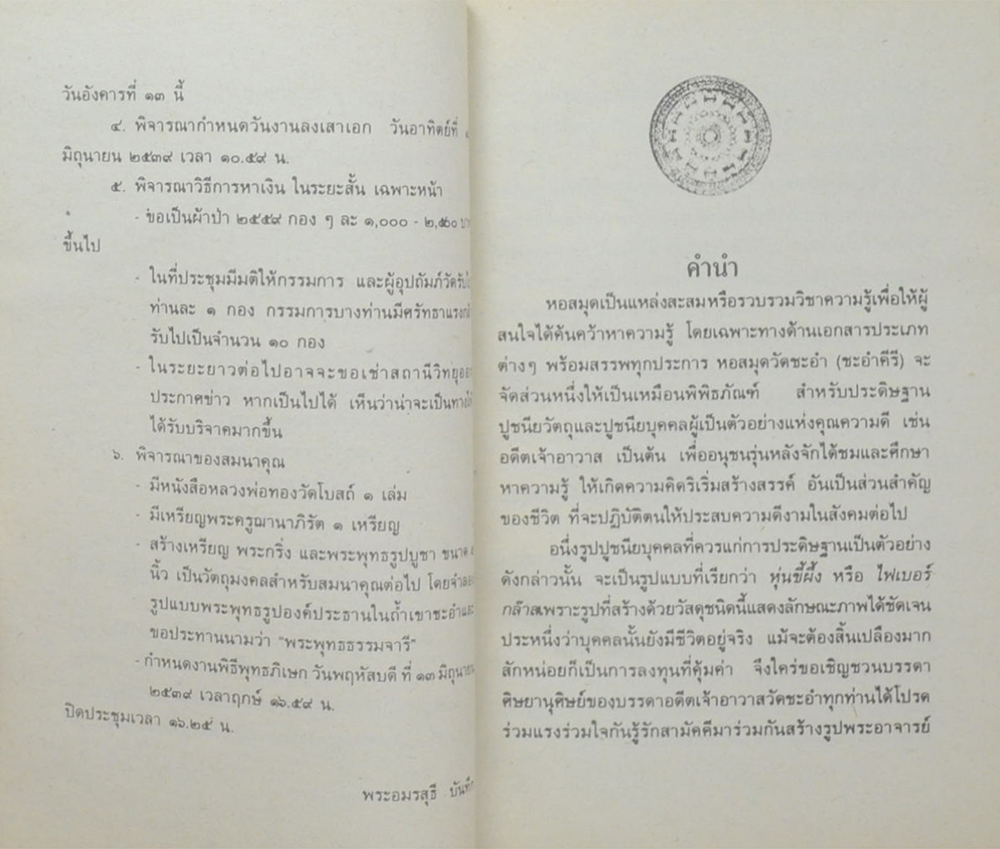 วันอังคารที่ ๑๓ นี้
๔. พิจารณากำหนดวันงานลงเสาเอก วันอาทิตย์ที่
มิถุนายน ๒๕๓๙ เวลา ๑๐.๕๙ น.
๕. พิจารณาวิธีการหาเงิน ในระยะสั้น เฉพาะหน้า
- ขอเป็นผ้าป่า ๒๕๕๙ กอง ๆ ละ ๑,๐๐๐ -
ขึ้นไป
- ในที่ประชุมมีมติให้กรรมการ และผู้อุปถัมภ์วัดรับ
ท่านละ ๑ กอง กรรมการบางท่านมีศรัทธาแรง
รับไปเป็นจำนวน ๑๐ กอง
- ในระยะยาวต่อไปอาจจะขอเช่าสถานีวิทยุ
ประกาศข่าว หากเป็นไปได้ เห็นว่าน่าจะเป็นทาง
ได้รับบริจาคมากขึ้น
๖. พิจารณาของสมนาคุณ
- มีหนังสือหลวงพ่อทองวัดโบสถ์ ๑ เล่ม
- มีเหรียญพระครูฌานาภิรัต ๑ เหรียญ
- สร้างเหรียญ พระกริ่ง และพระพุทธรูปบูชา ขนาด
นิ้ว เป็นวัตถุมงคลสำหรับสมนาคุณต่อไป โดย
รูปแบบพระพุทธรูปองค์ประธานในถ้ำเขาชะอำ
ขอประทานนามว่า "พระพุทธธรรมจารี"
- กำหนดงานพิธีพุทธภิเษก วันพฤหัสบดี ที่ ๑๓
๒๕๓๙ เวลาฤกษ์ ๑๖.๕๙ น.
ปิดประชุมเวลา ๑๖.๒๕ น.
พระอมรสุธี
คำนำ
หอสมุดเป็นแหล่งสะสมหรือรวบรวมวิชาความรู้เพื่อให้ผู้
สนใจได้ค้นคว้าหาความรู้ โดยเฉพาะทางด้านเอกสารประเภท
ต่างๆ พร้อมสรรพทุกประการ หอสมุดวัดชะอำ (ชะอำคีรี) จะ
จัดส่วนหนึ่งให้เป็นเหมือนพิพิธภัณฑ์ สำหรับประดิษฐาน
ปูชนียวัตถุและปูชนียบุคคลผู้เป็นตัวอย่างแห่งคุณความดี เช่น
อดีตเจ้าอาวาส เป็นต้น เพื่ออนุชนรุ่นหลังจักได้ชมและศึกษา
หาความรู้ ให้เกิดความคิดริเริ่มสร้างสรรค์ อันเป็นส่วนสำคัญ
ของชีวิต ที่จะปฏิบัติตนให้ประสบความดีงามในสังคมต่อไป
อนึ่งรูปปูชนียบุคคลที่ควรแก่การประดิษฐานเป็นตัวอย่าง
ดังกล่าวนั้น จะเป็นรูปแบบที่เรียกว่า หุ่นขี้ผึ้ง หรือ ไฟเบอร์
กล๊าสเพราะรูปที่สร้างด้วยวัสดุชนิดนี้แสดงลักษณะภาพได้ชัดเจน
ประหนึ่งว่าบุคคลนั้นยังมีชีวิตอยู่จริง แม้จะต้องสิ้นเปลืองมาก
สักหน่อยก็เป็นการลงทุนที่คุ้มค่า จึงใคร่ขอเชิญชวนบรรดา
ศิษยานุศิษย์ของบรรดาอดีตเจ้าอาวาสวัดชะอำทุกท่านได้โปรด
ร่วมแรงร่วมใจกันรู้รักสามัคคีมาร่วมกันสร้างรูปพระอาจารย์